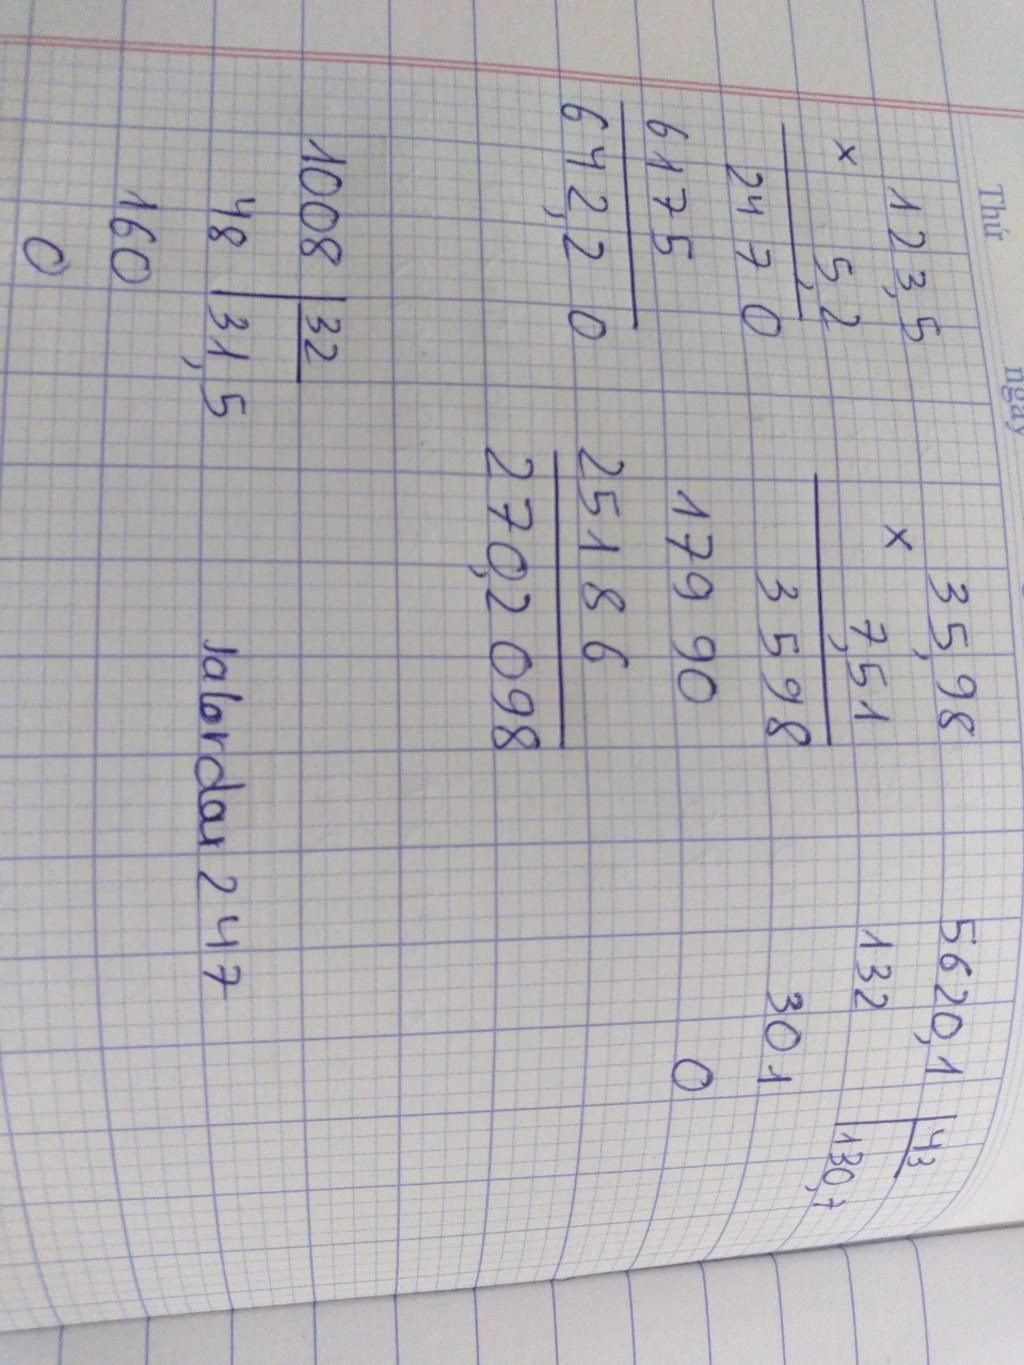 Thứ ngày
123,5
×
5,2
2470
6175
642,20
35,98
×
7,551
3598
17990
25186
270,2098
5620,1 43
132 130,7
301
0
1008 32
48 31,5
160
0
Jalordar 247